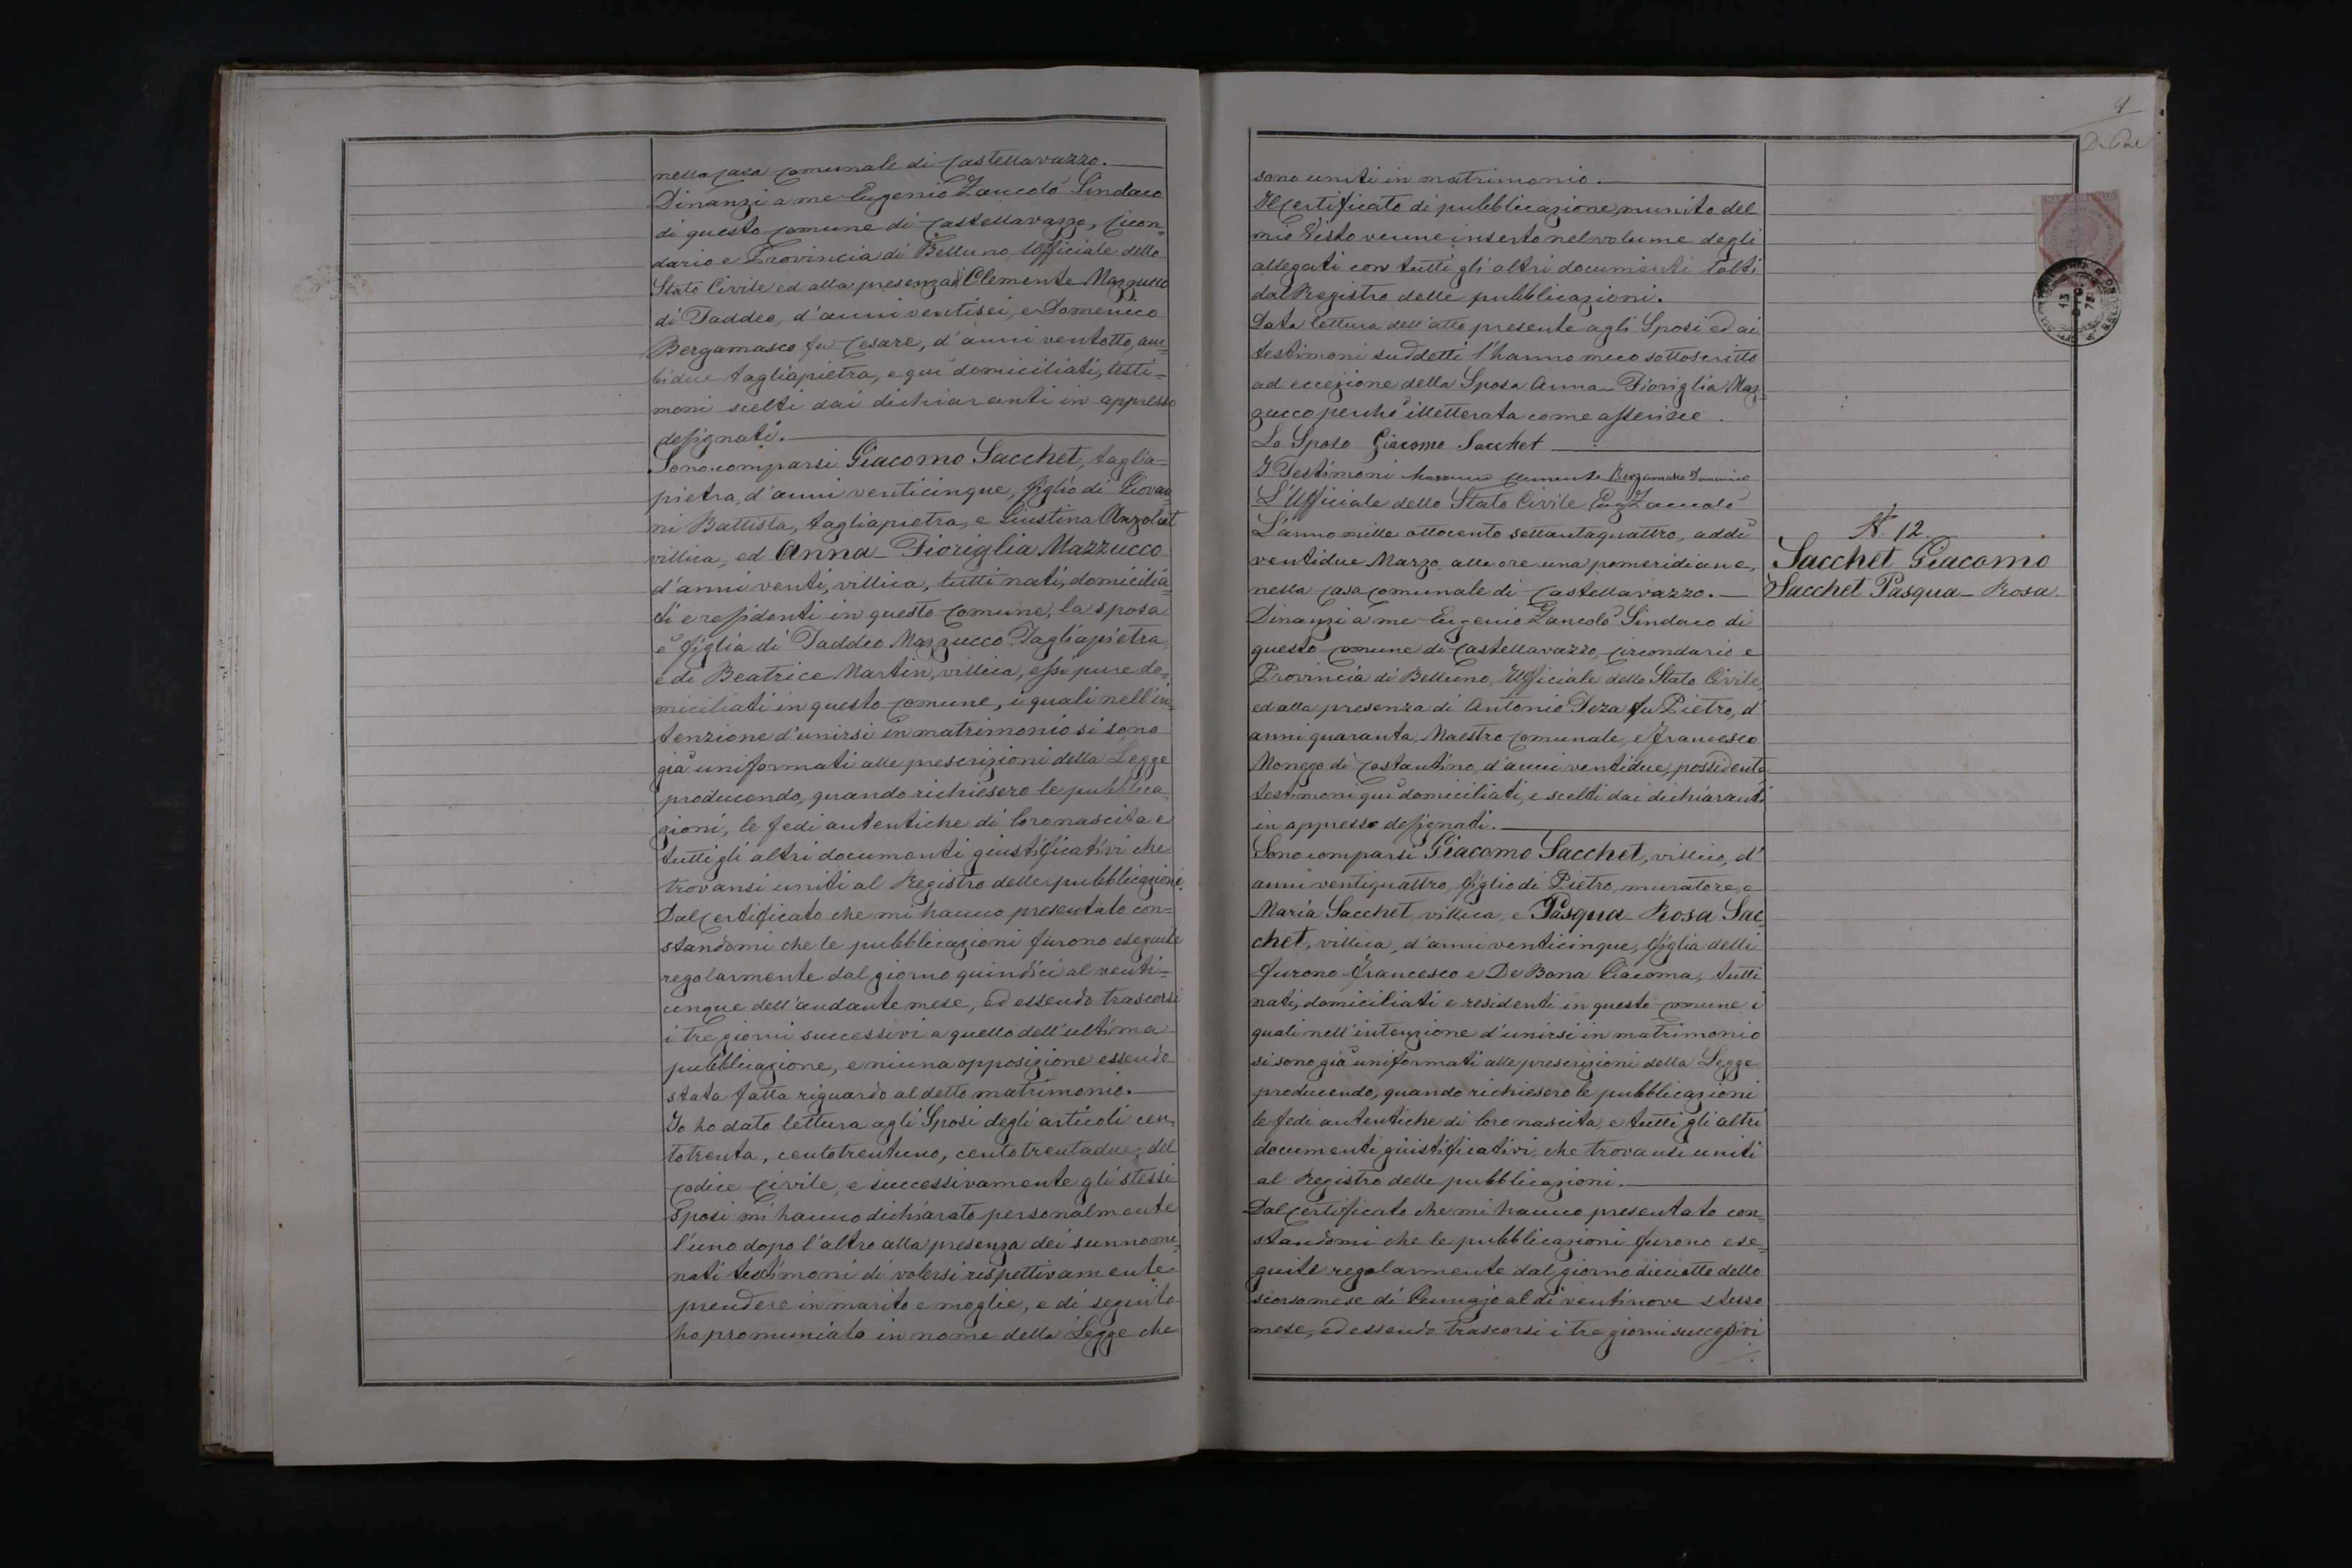 nella Casa Comunale di Castellavazzo.
Dinanzi a me Eugenio Zancolò Sindaco
di questo Comune di Castellavazzo, Circon=
dario e Provincia di Belluno Ufficiale dello
Stato Civile ed alla presenza di Clemente Mazzucco
di Taddeo, d'anni ventisei, e Domenico
Bergamasco fu Cesare, d'anni ventotto, am=
bidue tagliapietra, e quì domiciliati, testi=
moni scelti dai dichiaranti in appresso
designati.
Sono comparsi Giacomo Sacchet, taglia=
pietra, d'anni venticinque, figlio di Giovan=
ni Battista, tagliapietra, e Giustina Anzolut
villica, ed Anna-Fioriglia Mazzucco
d'anni venti, villica, tutti nati, domicilia=
ti e residenti in questo Comune, la sposa
è figlia di Taddeo Mazzucco Tagliapietra,
e di Beatrice Martin, villica, essi pure do=
miciliati in questo Comune, i quali nell'in=
tenzione d'unirsi in matrimonio si sono
già uniformati alle prescrizioni della Legge
producendo, quando richiesero le pubblica=
zioni, le fedi autentiche di loro nascita e
tutti gli altri documenti giustificativi che
trovansi uniti al Registro delle pubblicazioni.
Dal Certificato che mi hanno presentato con=
standomi che le pubblicazioni furono eseguite
regolarmente dal giorno quindici al venti=
cinque dell'andante mese, ed essendo trascorsi
i tre giorni successivi a quello dell'ultima
pubblicazione, e niuna opposizione essendo
stata fatta riguardo al detto matrimonio.
Io ho dato lettura agli Sposi degli articoli cen=
totrenta, centotrentuno, centotrentadue, del
Codice Civile, e successivamente gli stessi
Sposi mi hanno dichiarato personalmente
l'uno dopo l'altro alla presenza dei sunnomi=
nati testimoni di volersi rispettivamente
prendere in marito e moglie, e di seguito
ho pronunciato in nome della Legge che
9
sono uniti in matrimonio.
Il Certificato di pubblicazione, munito del
mio Visto venne inserto nel volume degli
allegati con tutti gli altri documenti tolti
dal Registro delle pubblicazioni.
Data lettura dell'atto presente agli Sposi ed ai
testimoni suddetti l'hanno meco sottoscritto
ad eccezione della Sposa Anna-Fioriglia Maz=
zucco perchè illetterata come asserisce.
Lo Sposo Giacomo Sacchet
I Testimoni Mazzucco Clemente Bergamasco Domenico
L'Ufficiale dello Stato Civile Eug Zancolò
L'anno mille ottocento settantaquattro, addì
ventidue Marzo, alle ore una pomeridiane,
nella Casa Comunale di Castellavazzo.
Dinanzi a me Eugenio Zancolò Sindaco di
questo Comune di Castellavazzo, Circondario e
Provincia di Belluno, Ufficiale dello Stato Civile,
ed alla presenza di Antonio Teza fu Pietro, d'
anni quaranta, Maestro Comunale, e Francesco
Monego di Costantino, d'anni ventidue, possidente
testimoni quì domiciliati, e scelti dai dichiaranti
in appresso designati.
Sono comparsi Giacomo Sacchet, villico, d'
anni ventiquattro, figlio di Pietro, muratore, e
Maria Sacchet, villica, e Pasqua-Rosa Sac=
chet, villica, d'anni venticinque, figlia delli
furono Francesco e De Bona Giacoma, tutti
nati, domiciliati e residenti in questo Comune i
quali nell'intenzione d'unirsi in matrimonio
si sono già uniformati alle prescrizioni della Legge
producendo, quando richiesero le pubblicazioni
le fedi autentiche di loro nascita, e tutti gli altri
documenti giustificativi, che trovansi uniti
al Registro delle pubblicazioni.
Dal Certificato che mi hanno presentato con=
standomi che le pubblicazioni furono ese=
guite regolarmente dal giorno dieciotto dello
scorso mese di Gennajo al dì ventinove stesso
mese, ed essendo trascorsi i tre giorni successivi
N. 12.
Sacchet Giacomo
Sacchet Pasqua-Rosa
13